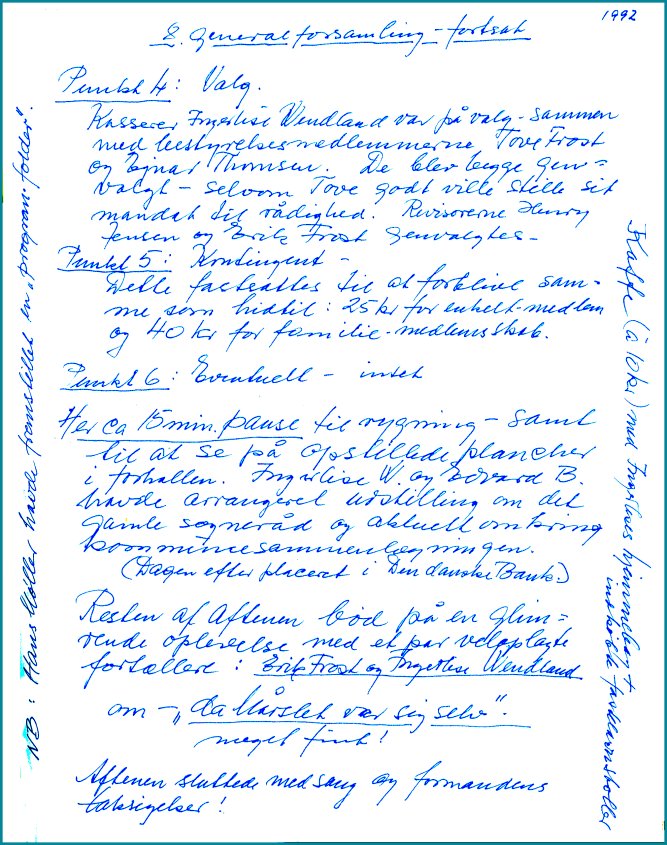 1992
2. Generalforsamling - fortsat
Punkt 4: Valg.
Kasserer Ingerlise Wendland var på valg - sammen
med bestyrelsesmedlemmerne Tove Frost
og Ejnar Thomsen. De blev begge gen-
valgt - selvom Tove godt ville stille sit
mandat til rådighed. Revisorerne Henry
Jensen og Erik Frost genvalgtes -
Punkt 5: Kontingent -
Dette fastsattes til at forblive sam-
me som hidtil: 25 kr for enkelt-medlem
og 40 kr for familie-medlemsskab.
Punkt 6: Eventuelt - intet
Her ca 15 min. pause til rygning - samt
til at se på opstillede plancher
i forhallen. Ingerlise W. og Edvard B.
havde arrangeret udstilling om det
gamle sogneråd og aktuelt omkring
kommunesammenlægningen.
(Dagen efter placeret i Den danske Bank.)
Resten af Aftenen bød på en glim-
rende oplevelse med et par veloplagte
fortællere: Erik Frost og Ingerlise Wendland
om - "da Mårslet var sig selv".
meget fint!
Aftenen sluttede med sang og formandens
taksigelser!
NB: Hans Møller havde fremstillet en "program-folder".
Kaffe (à 10 kr) med Ingerlises hjemmebag +
indkøbte fastelavnsboller